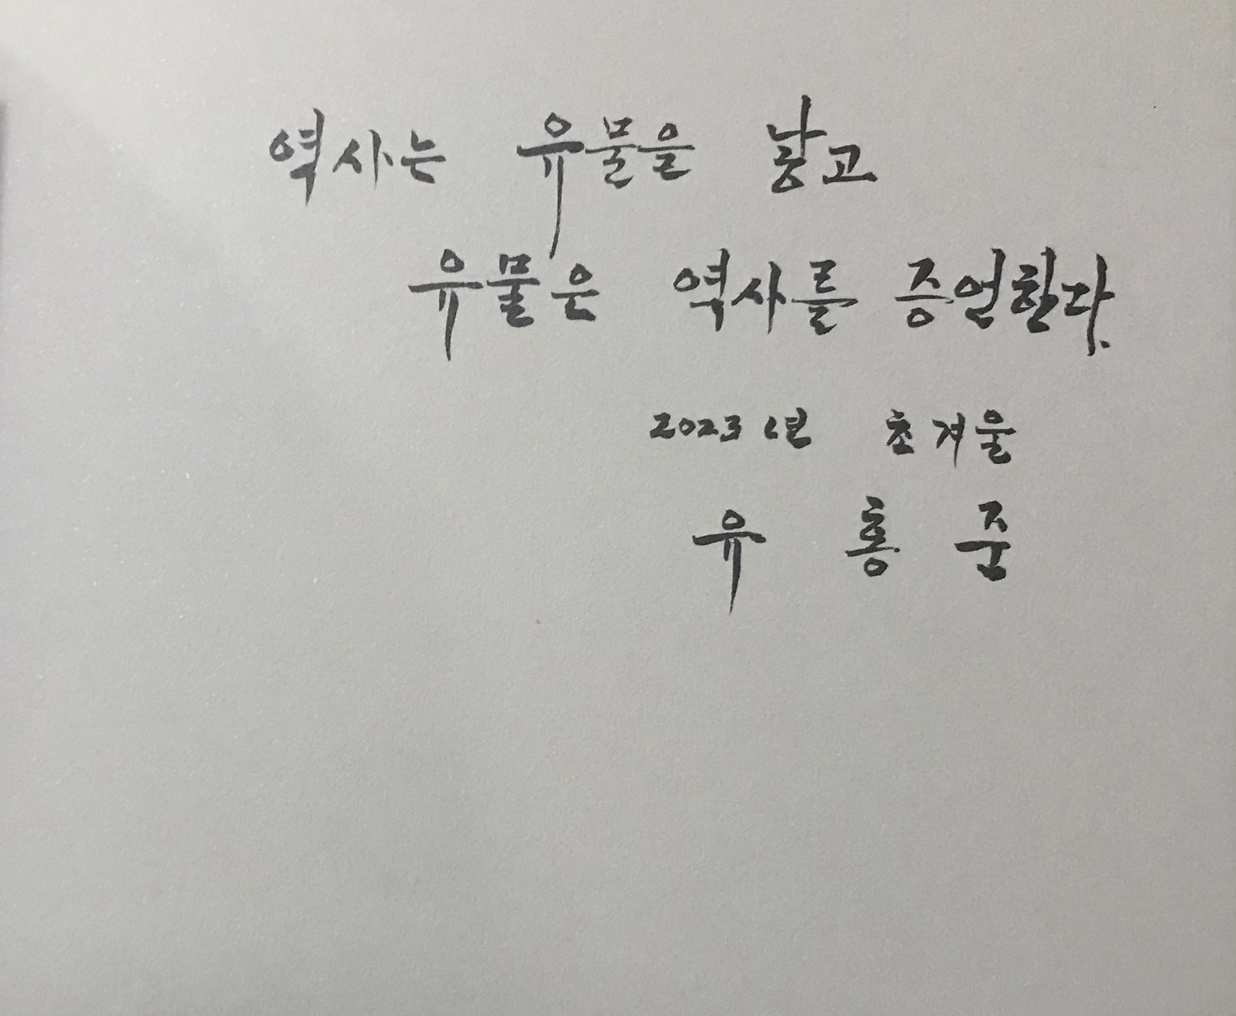 역사는 유물을 낳고
유물은 역사를 증언한다.
2023년 초겨울
유 홍 준